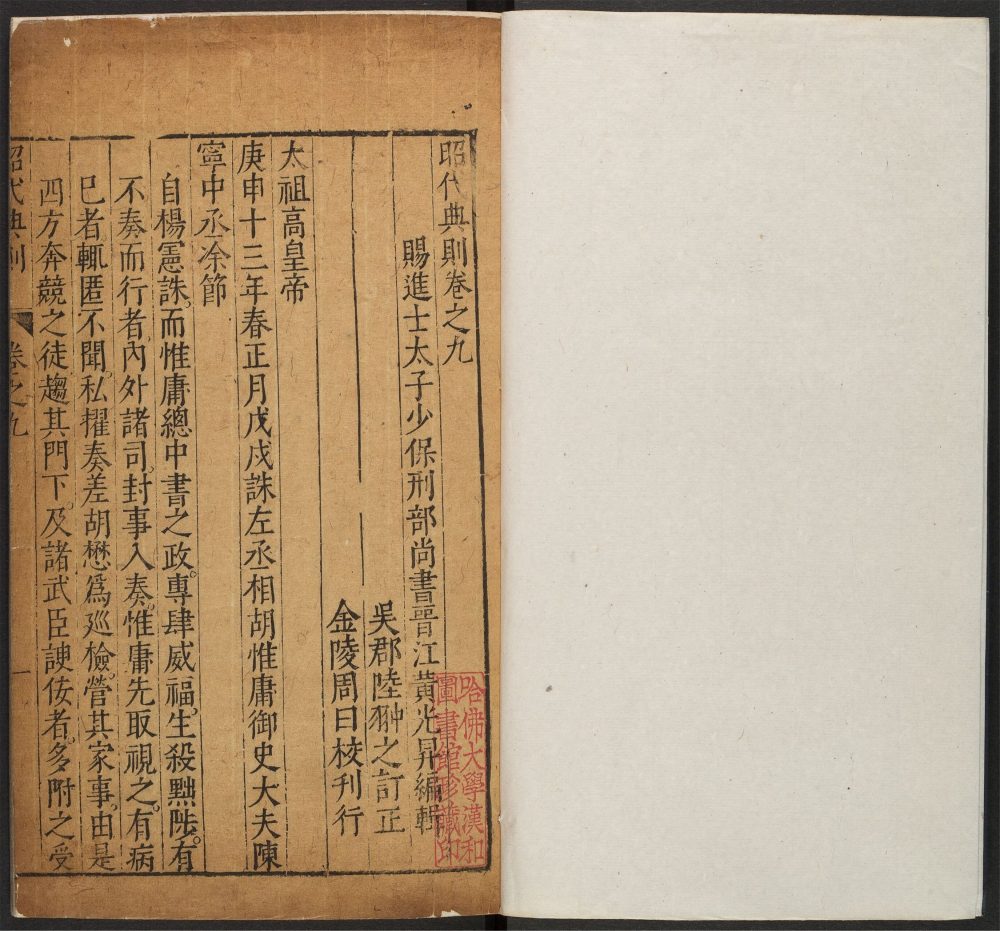 昭代典則卷之九
賜進士太子少保刑部尚書晉江黃光昇編輯
吳郡陸翀之訂正
金陵周曰校刊行
太祖高皇帝
庚申十三年春正月戊戌誅左丞相胡惟庸御史大夫陳
寧中丞涂節
自楊憲誅。而惟庸總中書之政。專肆威福。生殺黜陟。有
不奏而行者。內外諸司。封事入奏。惟庸先取視之。有病
巳者。輒匿不聞。私擢奏差胡懋爲廵檢。營其家事。由是
四方奔競之徒。趨其門下。及諸武臣諛佞者。多附之受
昭代典則
卷之九
一
哈佛大學漢和
圖書館珍藏印